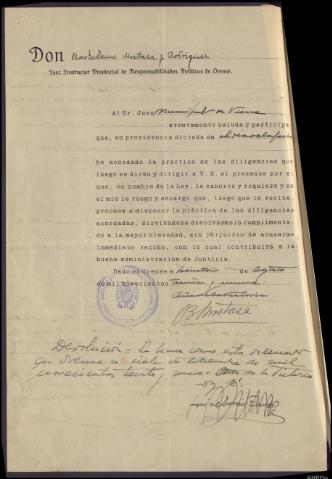 DON Bartolome Mostaza y Rodriguez
Juez Instructor Provincial de Responsabilidades Políticas de Orense.
Al Sr. Juez Municipal de Viana
atentamente saluda y participa
que, en providencia dictada en el día de la fecha
he acordado la práctica de las diligencias que
luego se dirán y dirigir a V. S. el presente por el
que, en nombre de la Ley, le exhorto y requiero y en
el mío le ruego y encargo que, luego que lo reciba,
proceda a disponer la práctica de las diligencias
acordadas, sirviéndose devolvérmelo cumplimenta-
do a la mayor brevedad, sin perjuicio de acusarme
inmediato recibo, con lo cual contribuirá a la
buena administración de Justicia.
Dado en Orense a treinta de Agosto
de mil novecientos treinta y nueve
Año de la Victoria
B Mostaza
Devolución = la hace como está ordenado
en Orense a siete de de mil
novecientos treinta y nueve Año de la Victoria